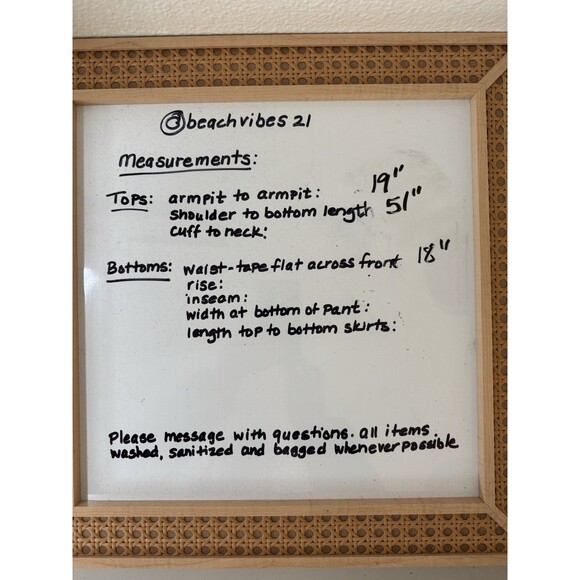 @beachvibes 21
Measurements:
Tops: armpit to armpit: 19"
shoulder to bottom length 51"
cuff to neck:
Bottoms: waist-tape flat across front 18"
rise:
inseam:
width at bottom of pant:
length top to bottom skirts:
Please message with questions. all items
washed, sanitized and bagged whenever possible